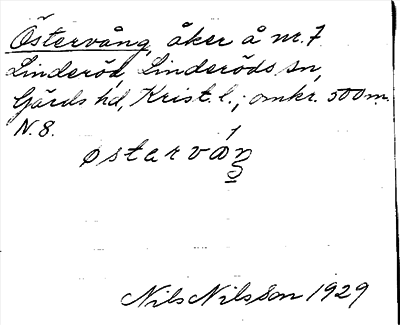 Östervång, åker å nr. 7
Linderöd, Linderöds sn,
Gärds hd, Krist. l.; omkr. 500 m.
N. 8.
østarvån̠
Nils Nilsson 1929